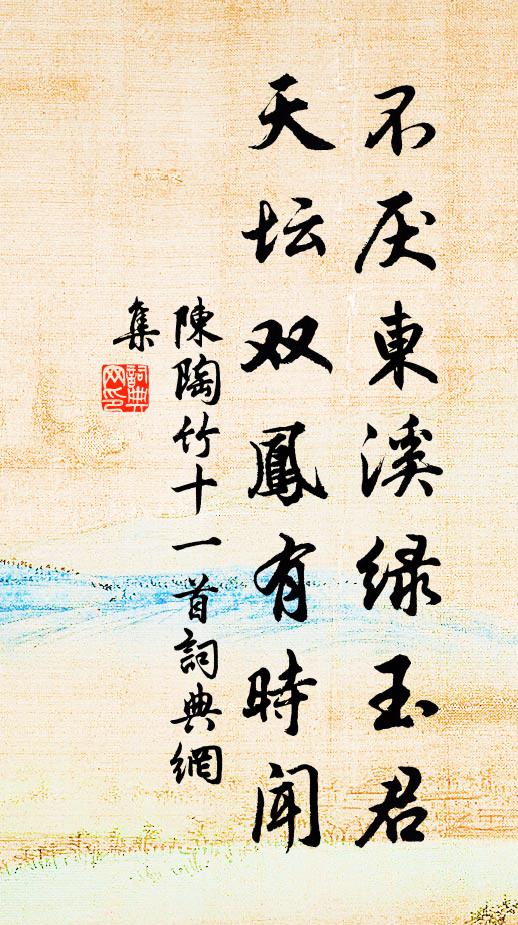 不厌東溪绿玉君
天坛双鳳有時聞
陳陶竹十一首詞典網
集
詞典
网印